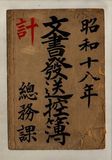 昭和十八年
文書發送控簿
計
總務課